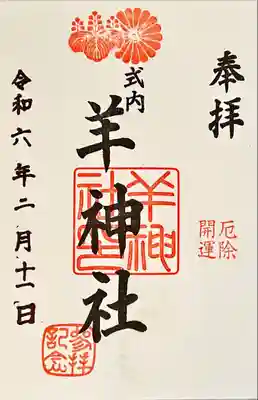 奉拝
厄除
開運
式内
羊神社
羊神
社印
参拝
記念
令和六年二月十一日